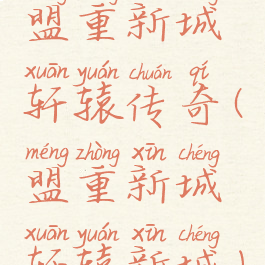 盟重新城
xuān yuán chuán qí
轩辕传奇(
méng zhòng xīn chéng
盟重新城
xuān yuán xīn chéng
轩辕新城)